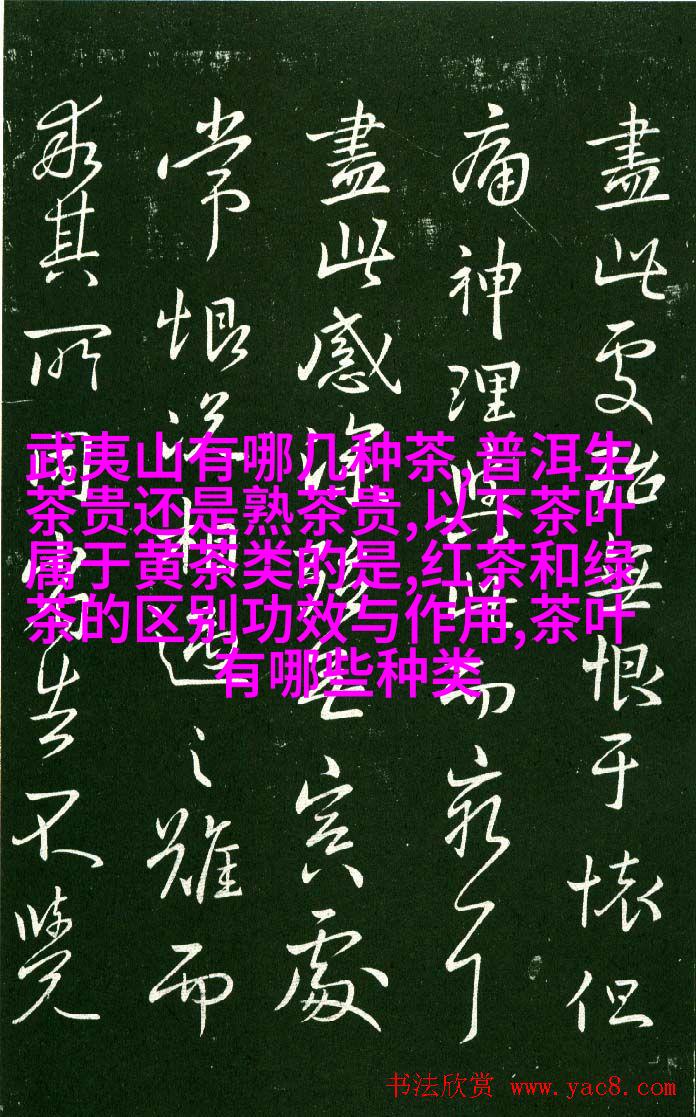 盡此處無恨于懷但
痛神理與而窮耳
盡此感深冥處
常恨相遇之難而
其所不覺
武夷山有哪几种茶,普洱生
茶贵还是熟茶贵,以下茶叶
属于黄茶类的是,红茶和绿
茶的区别功效与作用,茶叶
有哪些种类
书法欣赏 www.yac8.com